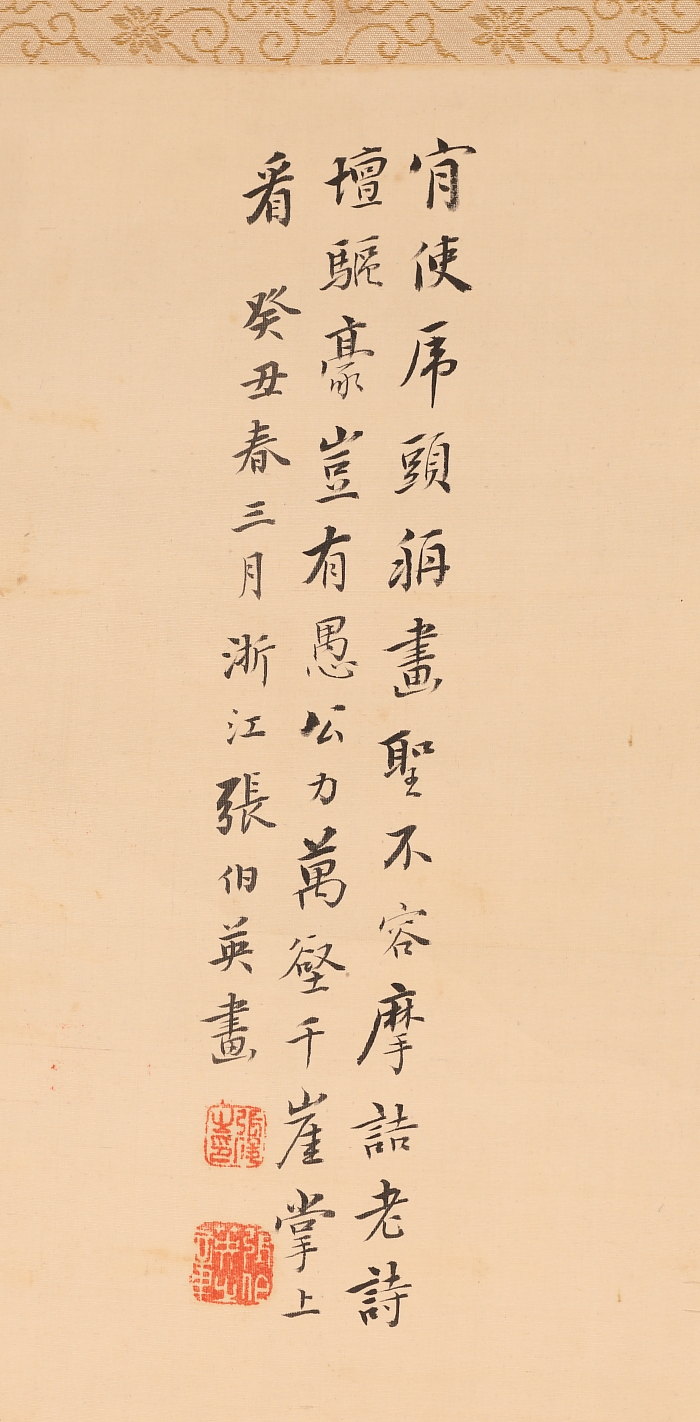 宜使虎頭稱畫聖不容摩詰老詩
壇驅豪豈有愚公力萬壑千崖掌上
看 癸丑春三月浙江張伯英畫